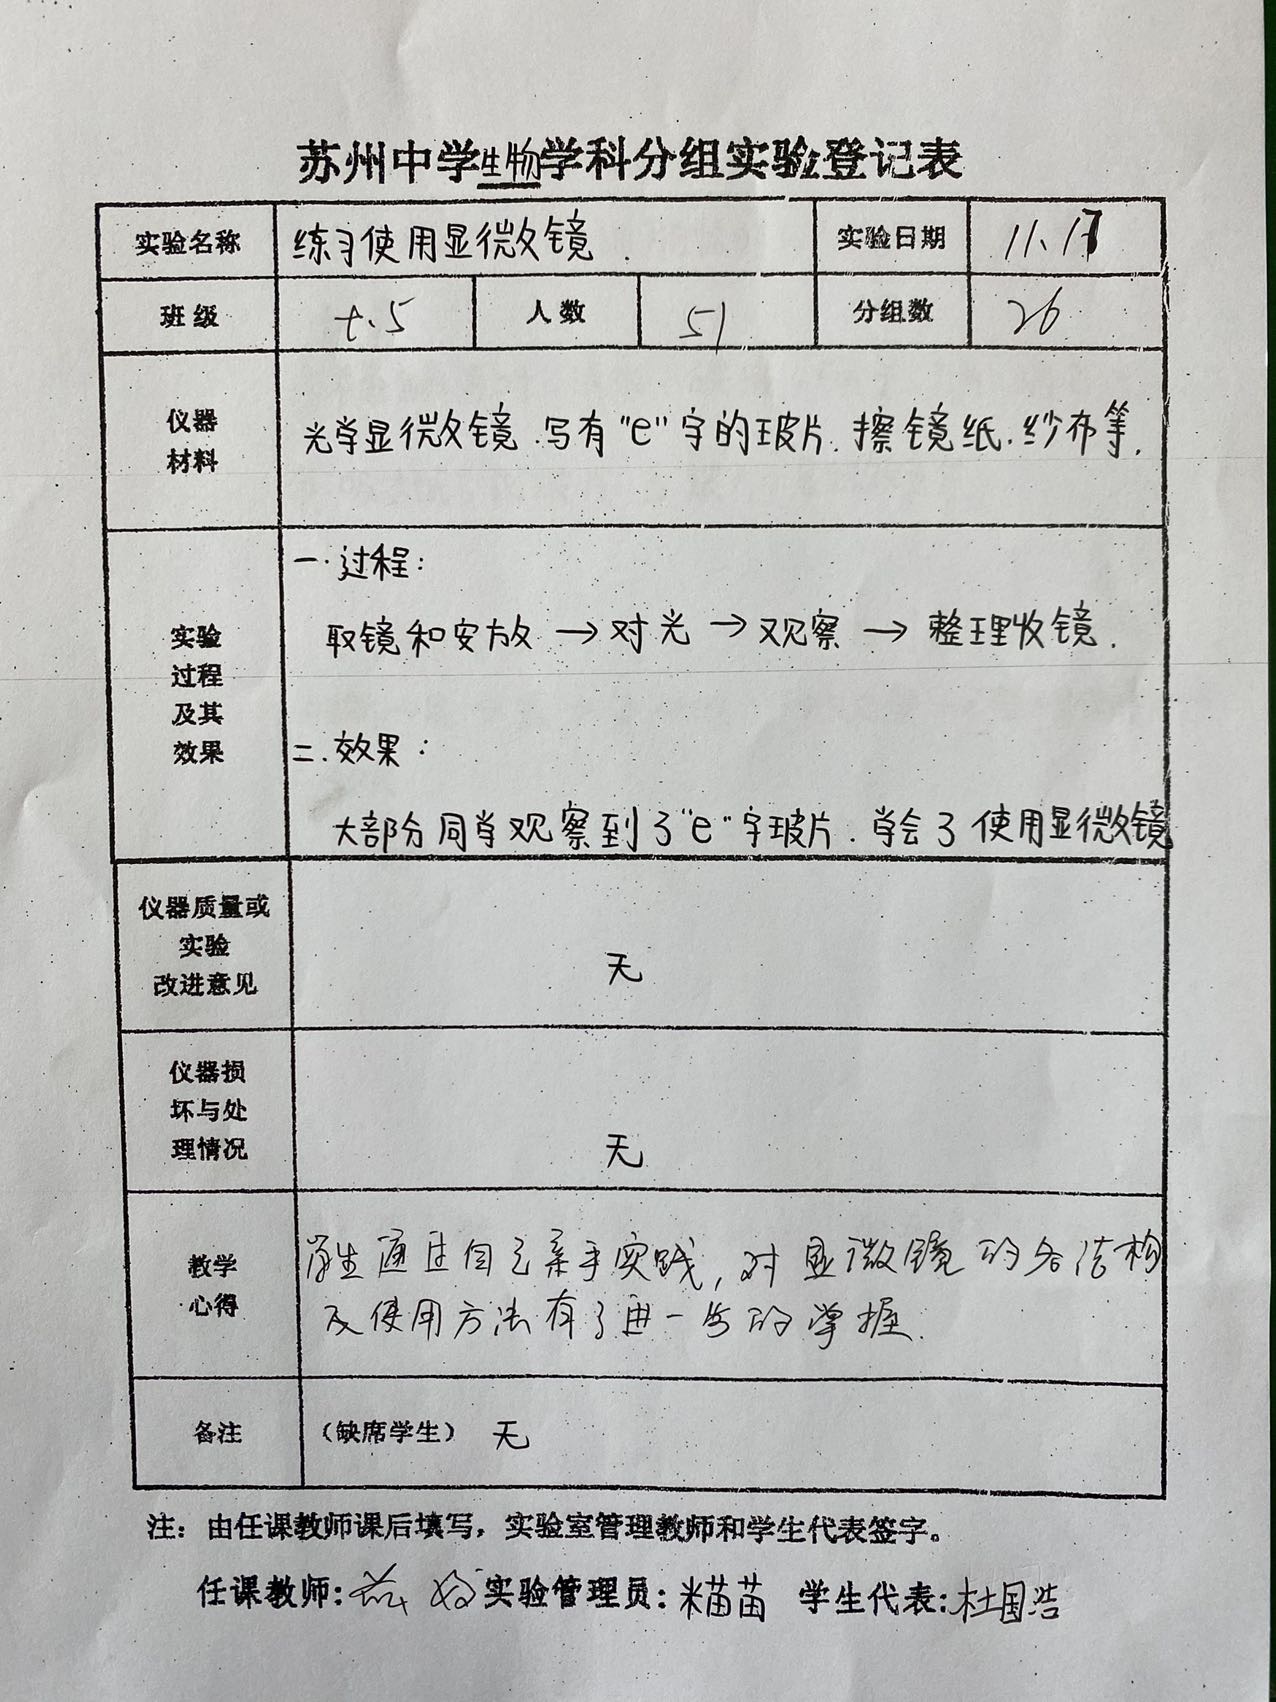 苏州中学生物学科分组实验登记表
实验名称 练习使用显微镜. 实验日期 11.17
班级 七.5 人数 51 分组数 26
仪器
材料
光学显微镜.写有"e"字的玻片.擦镜纸.纱布等.
实验
过程
及其
效果
一.过程:
取镜和安放→对光→观察→整理收镜.
二.效果:
大部分同学观察到了"e"字玻片.学会了使用显微镜
仪器质量或
实验
改进意见
无
仪器损
坏与处
理情况
无
教学
心得
学生通过自己亲手实践,对显微镜的各结构
及使用方法有了进一步的掌握.
备注 (缺席学生) 无
注:由任课教师课后填写,实验室管理教师和学生代表签字。
任课教师: 实验管理员:米苗苗 学生代表:杜国浩